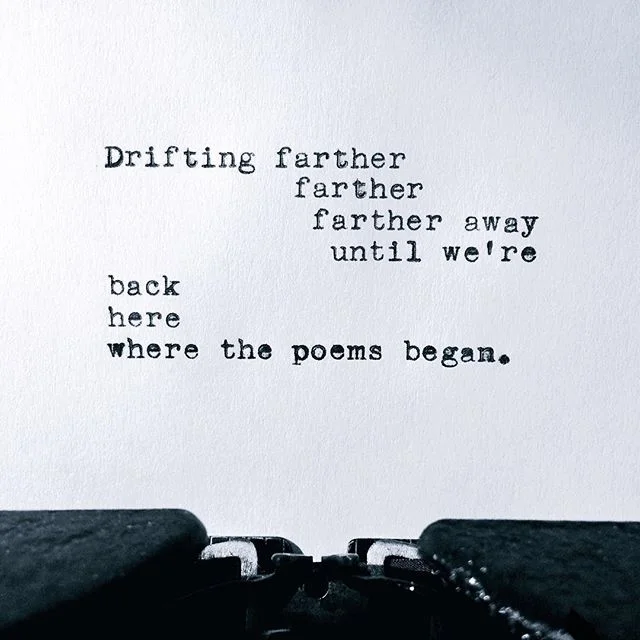 Drifting farther
farther
farther away
until we're
back
here
where the poems began.